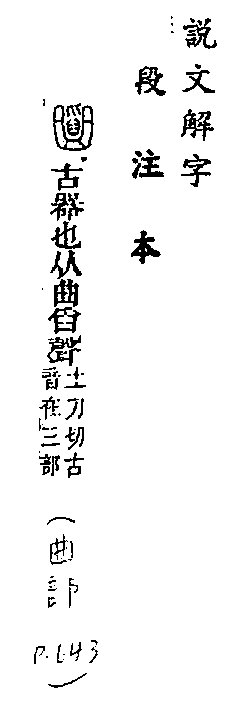 說文解字
段注本
古器也从曲舀聲
土刀切古
音在三部
(曲部
P.643)